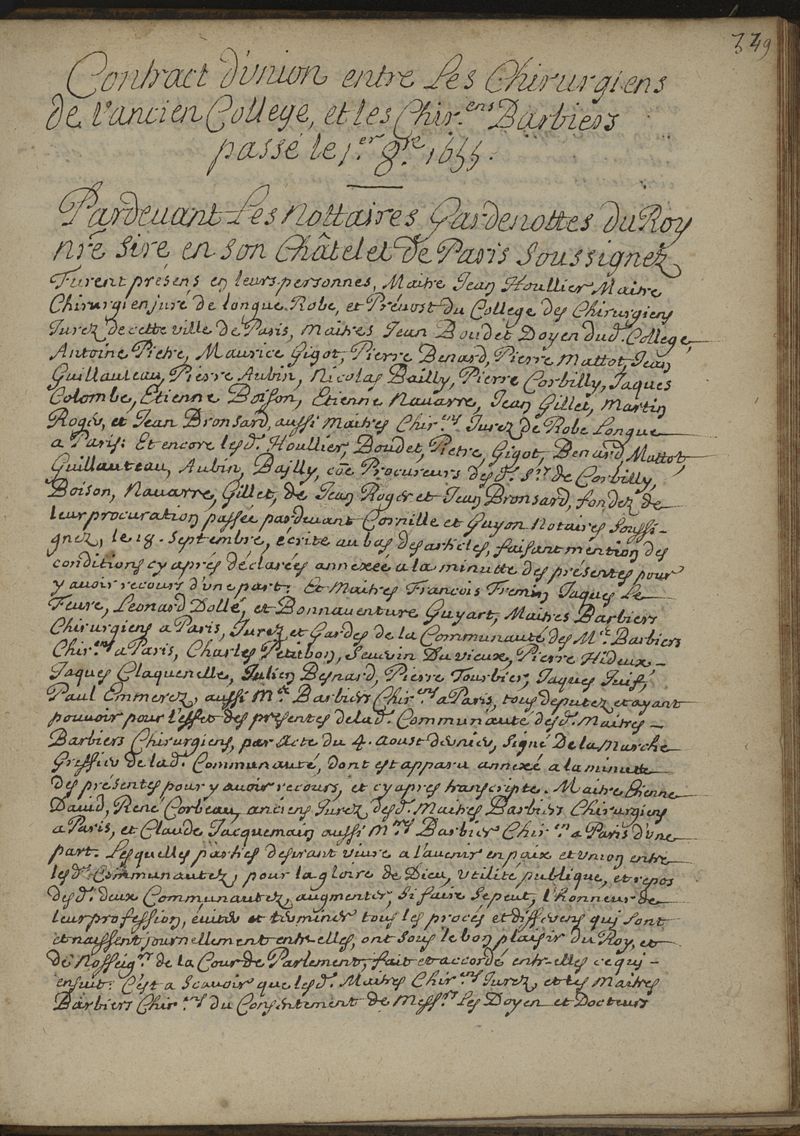 339
Contract d'vnion entre Les Chirurgiens
de l'ancien College, et les Chir.ens Barbiers
passé le 1.er 8.re 1655.
Pardeuant Les Nottaires Gardenottes du Roy
nr̃e Sire en son Châtelet de Paris Soussignez
Furent présens en leurs personnes, Maitre Jean Houllier Maitre
Chirurgien juré de longue Robe, et Prévost du College des Chirurgiens
Jurez de cette ville de Paris, Maitres Jean Boudet Doyen dud. College,
Antoine Pietre, Maurice Gigot, Pierre Benard, Pierre Mattot, Jean
Guillauteau, Pierre Aubin, Nicolas Bailly, Pierre Corbilly, Jaques
Colombe, Etienne Boison, Etienne Nauarre, Jean Gillet, Martin
Roger, et Jean Bronsard, aussi Maitres Chir.ens Jurez de Robe Longue
a Paris: Et encore lesd. Houllier, Boudet, Pietre, Gigot, Benard, Mattot,
Guillauteau, Aubin, Bailly, cõe Procureurs desd. S.rs de Corbilly,
Boison, Nauarre, Gillet, de Jean Roger et Jean Bronsard, fondez de
leur procuration passée pardeuant Cornille et Guyon Notaires Soussi-
gnez, le 18. Septembre, écrite au bas des articles, faisant mention des
conditions cy aprés déclarées annexée a la minutte des présentes pour
y auoir recours d'vne part: Et Maitres Francois Fremin, Jaques Le
Feure, Leonard Dolle, et Bonnauenture Guyart, Maitres Barbiers
Chirurgiens a Paris, Jurez et Gardes de la Communauté des M.es Barbiers
Chir.ens a Paris, Charles Petitbon, Seuvin Du vieux, Pierre Hideux-
Jaques Claquenelle, Julien Besnard, Pierre Tourbier, Jaques Juif,
Paul Emmerez, aussi M.es Barbiers Chir.ens a Paris, tous députez et ayant
pouuoir pour l'effet des présentes de lad. Communauté desd. Maitres-
Barbiers Chirurgiens, par Acte du 4. Aoust dernier, Signé De la Marche
Greffier de lad. Communauté, dont est apparu annexé a la minutte
des présentes pour y auoir recours, et cy apres transcripte. Maitre Etienne
David, René Corbeau, anciens Jurez desd. Maitres Barbiers Chirurgiens
a Paris, et Claude Jacquemain aussi M.res Barbier Chir.en a Paris d'vne
part. Lesquelles parties desirant viure a l'auenir en paix et vnion entre
lesd. Communautez, pour la gloire de Dieu, vtilité publique, et repos
desd. deux Communautez, augmenter, si faire se peut, l'honneur de
leur profession, éuiter et terminer tous les procés et differens qui sont
et naissent journellement entr-elles, ont sous le bon plaisir du Roy, et
de Nosseig.rs de la Cour de Parlement, fait et accordé entr-elles ce qui-
ensuit: C'est a Scauoir que lesd. Maitres Chir.ens Jurez, et les Maitres
Barbiers Chir.ens du Consentement de Mess.rs Les Doyen et Docteurs